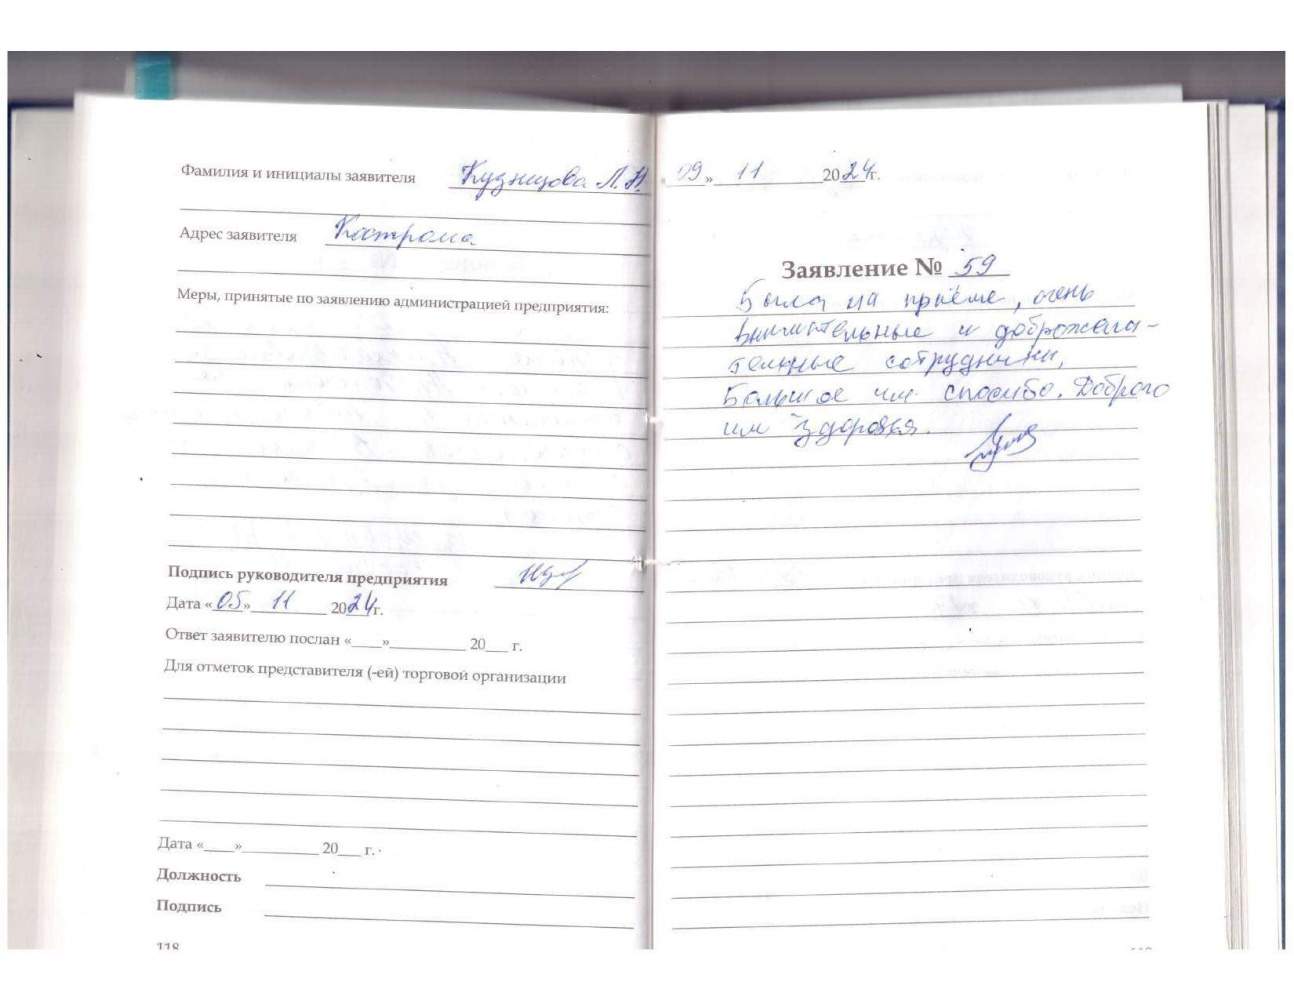 Фамилия и инициалы заявителя Кузнецова Л.Н.
Адрес заявителя Кострома
Меры, принятые по заявлению администрацией предприятия:
Подпись руководителя предприятия
Дата «05» 11 2024г.
Ответ заявителю послан «____»__________ 20___ г.
Для отметок представителя (-ей) торговой организации
Дата «____»__________ 20___ г.
Должность
Подпись
118
«09» 11 2024г.
Заявление № 59
Была на приёме, очень
внимательные и доброжела-
тельные сотрудники,
Большое им спасибо. Доброго
им здоровья.